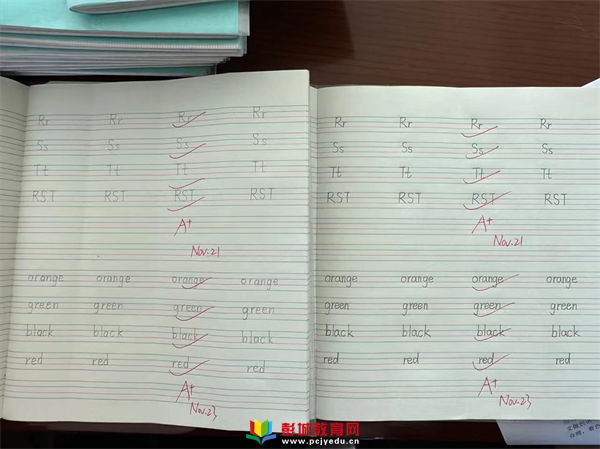 Rr Rr Rr Rr
Ss Ss Ss Ss
Tt Tt Tt Tt
RST RST RST RST
A+
Nov.21
orange orange orange orange
green green green green
black black black black
red red red red
A+
Nov.23
Rr Rr Rr Rr
Ss Ss Ss Ss
Tt Tt Tt Tt
RST RST RST RST
A+
Nov.21
orange orange orange orange
green green green green
black black black black
red red red red
A+
Nov.23
彭城教育网
www.pcjyedu.cn